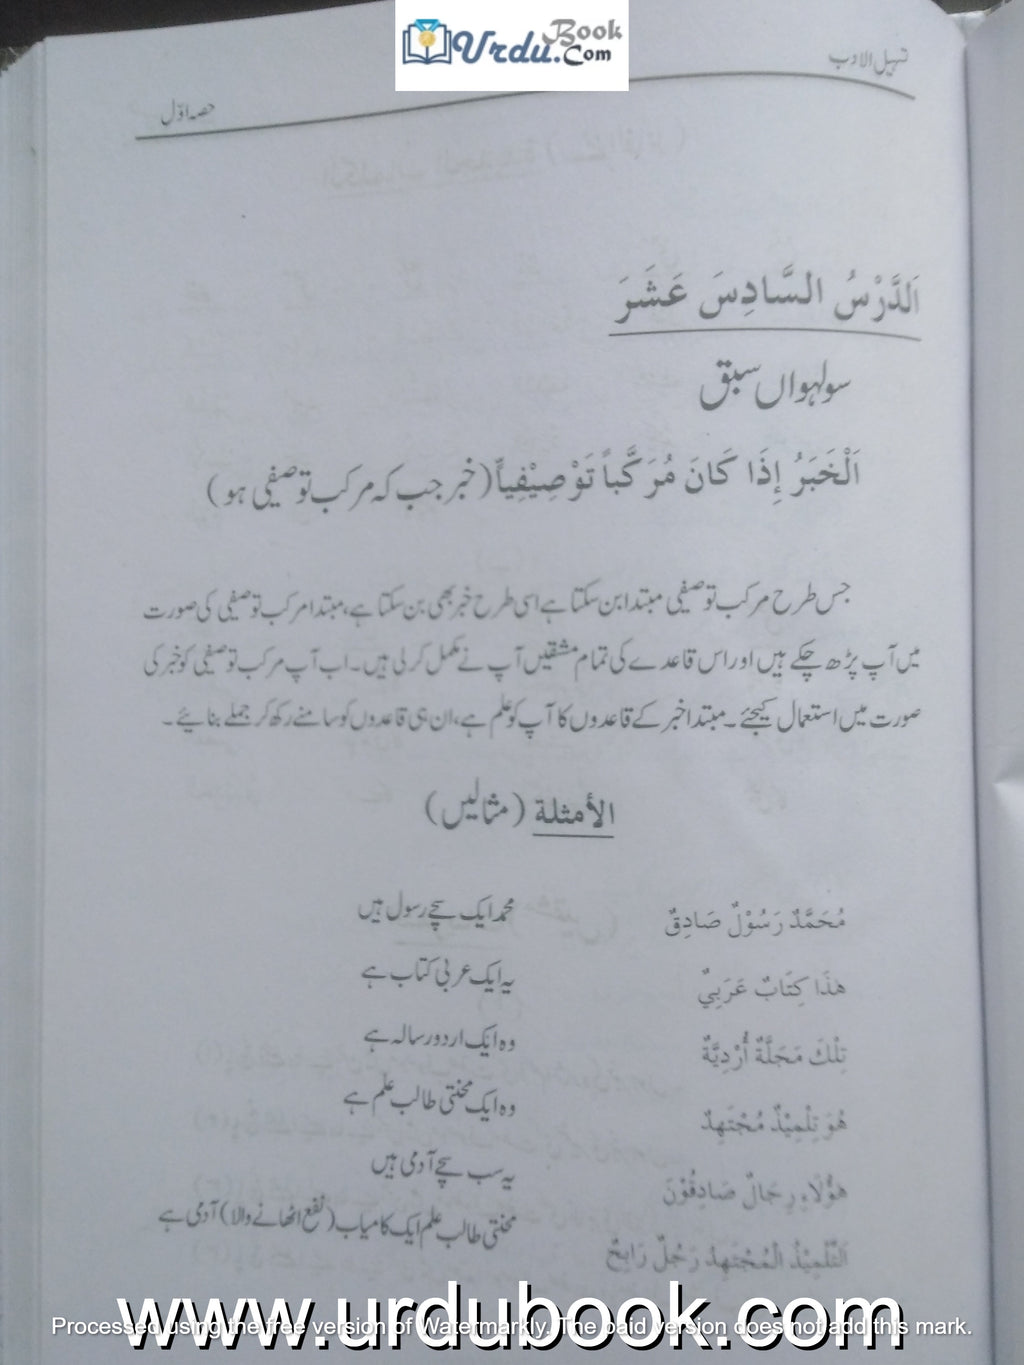 Urdu Book .Com
تسہیل الادب
حصہ اوّل
اَلدَّرْسُ السَّادِسَ عَشَرَ
سولہواں سبق
اَلْخَبَرُ إِذَا كَانَ مُرَكَّباً تَوْصِيْفِياًّ (خبر جب کہ مرکب توصیفی ہو)
جس طرح مرکب توصیفی مبتدا بن سکتا ہے اسی طرح خبر بھی بن سکتا ہے، مبتدا مرکب توصیفی کی صورت
میں آپ پڑھ چکے ہیں اور اس قاعدے کی تمام مشقیں آپ نے مکمل کر لی ہیں۔ اب آپ مرکب توصیفی کو خبر کی
صورت میں استعمال کیجئے۔ مبتدا خبر کے قاعدوں کا آپ کو علم ہے، ان ہی قاعدوں کو سامنے رکھ کر جملے بنائیے۔
الأمثلة (مثالیں)
مُحَمَّدٌ رَسُوْلٌ صَادِقٌ محمد ایک سچے رسول ہیں
هٰذَا كِتَابٌ عَرَبِيٌّ یہ ایک عربی کتاب ہے
تِلْكَ مَجَلَّةٌ أُرْدِيَّةٌ وہ ایک اردو رسالہ ہے
هُوَ تِلْمِيْذٌ مُجْتَهِدٌ وہ ایک محنتی طالب علم ہے
هٰؤُلَاءِ رِجَالٌ صَادِقُوْنَ یہ سب سچے آدمی ہیں
اَلتِّلْمِيْذُ الْمُجْتَهِدُ رَجُلٌ رَابِحٌ محنتی طالب علم ایک کامیاب (نفع اٹھانے والا) آدمی ہے
www.urdubook.com
Processed using the free version of Watermarkly. The paid version does not add this mark.